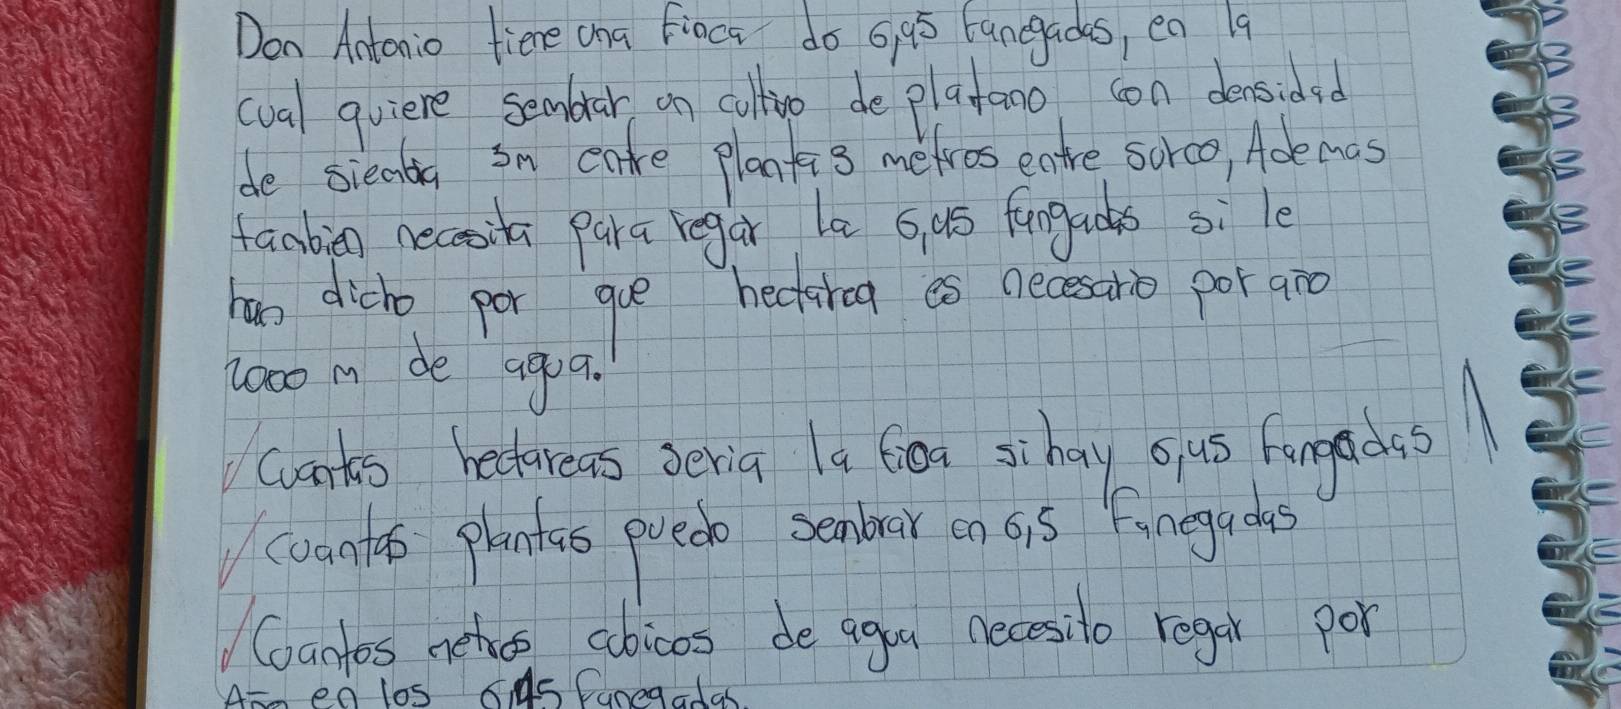 Don Antonio tiene una Finca do 6,95 Fanegadas, en la
cual quiere sembrar un cultivo de platano con densidad
de siembra 3m entre planta 3 metros entre surco, Ademas
tanbien necesita para regar la 6,95 fangadas si le
han dicho por que hectarea es necesario por año
2000 m de agua.
Cuantas hectareas seria la fica si hay 6,95 Fangadas
cuantas plantas puedo senbrar en 6,5 Fanegadas
Cuantos metros cubicos de agua necesito regar por
Año en los 6,95 Fanegadas.